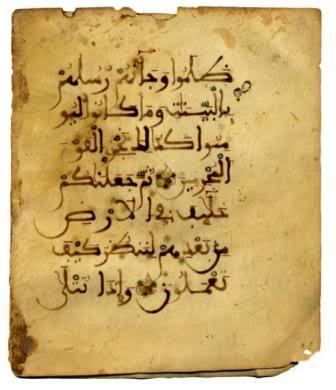 ظلموا وجاءتهم رسلهم
بالبينت وما كانوا ليو
منوا كذلك نجزي القوم
المجرمين ثم جعلنكم
خلئف في الارض
من بعدهم لننظر كيف
تعملون واذا تتلى